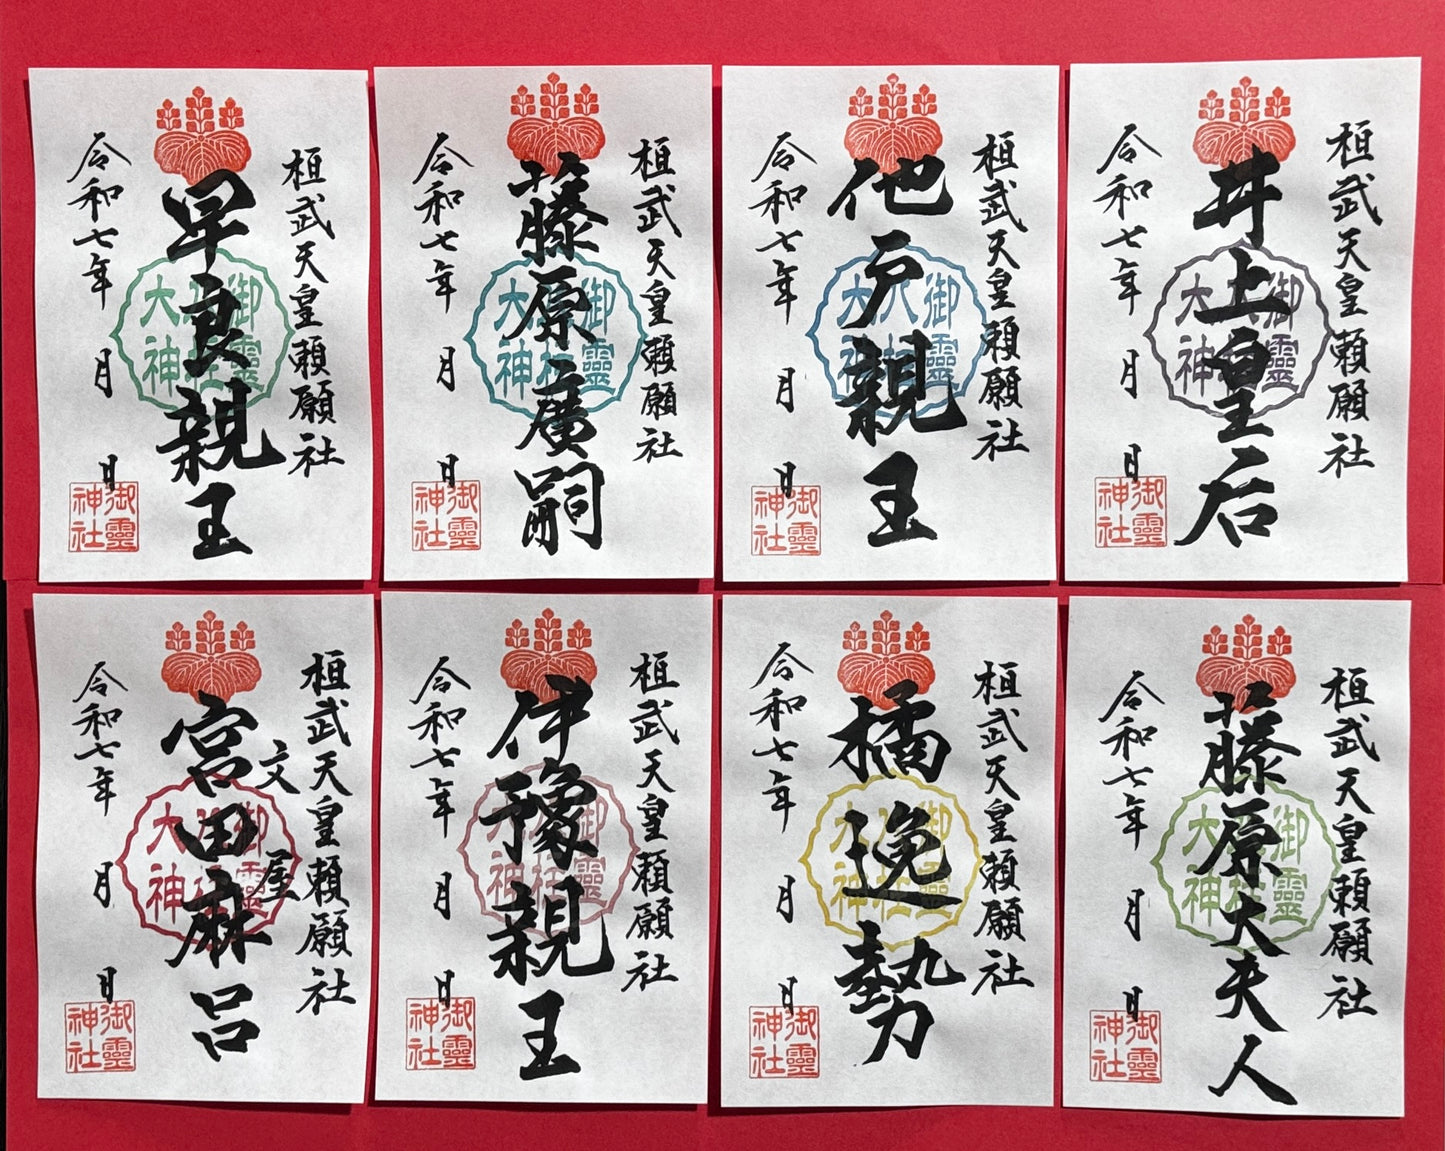 桓武天皇頼願社
早良親王
令和七年 月 日
御靈
大神
御靈
神社
桓武天皇頼願社
藤原廣嗣
令和七年 月 日
御靈
社
大神
御靈
神社
桓武天皇頼願社
他戸親王
令和七年 月 日
御靈
八社
大神
御靈
神社
桓武天皇頼願社
井上皇后
令和七年 月 日
御靈
大神
御靈
神社
桓武天皇頼願社
文屋
宮田麻呂
令和七年 月 日
御靈
大神
御靈
神社
桓武天皇頼願社
伊豫親王
令和七年 月 日
御靈
社
大神
御靈
神社
桓武天皇頼願社
橘逸勢
令和七年 月 日
御靈
八社
大神
御靈
神社
桓武天皇頼願社
藤原大夫人
令和七年 月 日
御靈
社
大神
御靈
神社